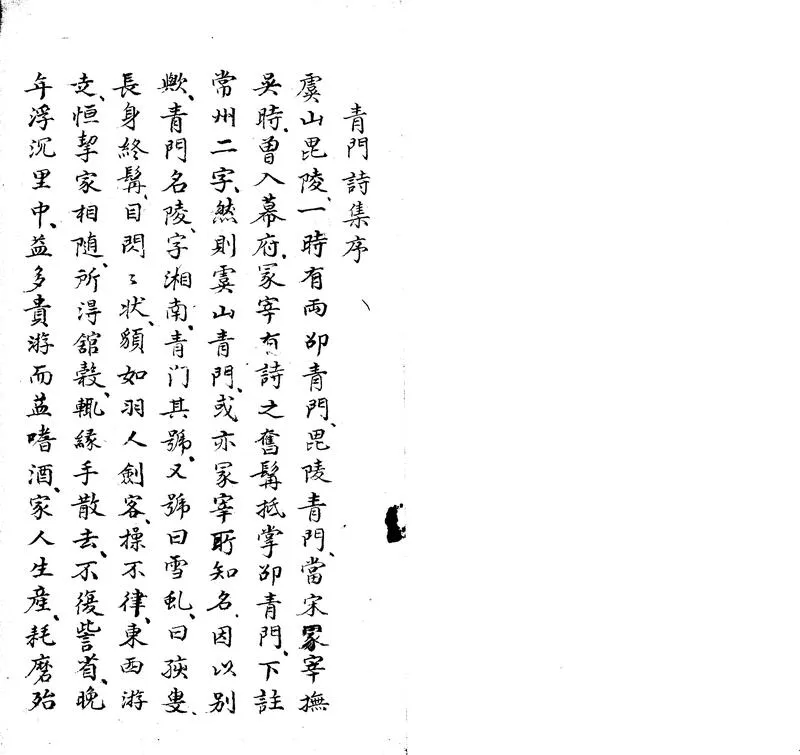 青門詩集序
虞山毘陵、一時有兩邵青門、毘陵青門、當宋冢宰撫
吳時、曾入幕府、冢宰有詩之奮髯抵掌邵青門、下註
常州二字、然則虞山青門、或亦冢宰所知名、因以别
歟、青門名陵、字湘南、青门其號、又號曰雪虬、曰
長身終髯、目閃〻状、貌如羽人劍客、操不律、東西游
走、恒挈家相隨、所得館穀、輒緣手散去、不復訾省、晚
年浮沉里中、益多貴游而益嗜酒、家人生產、耗磨殆